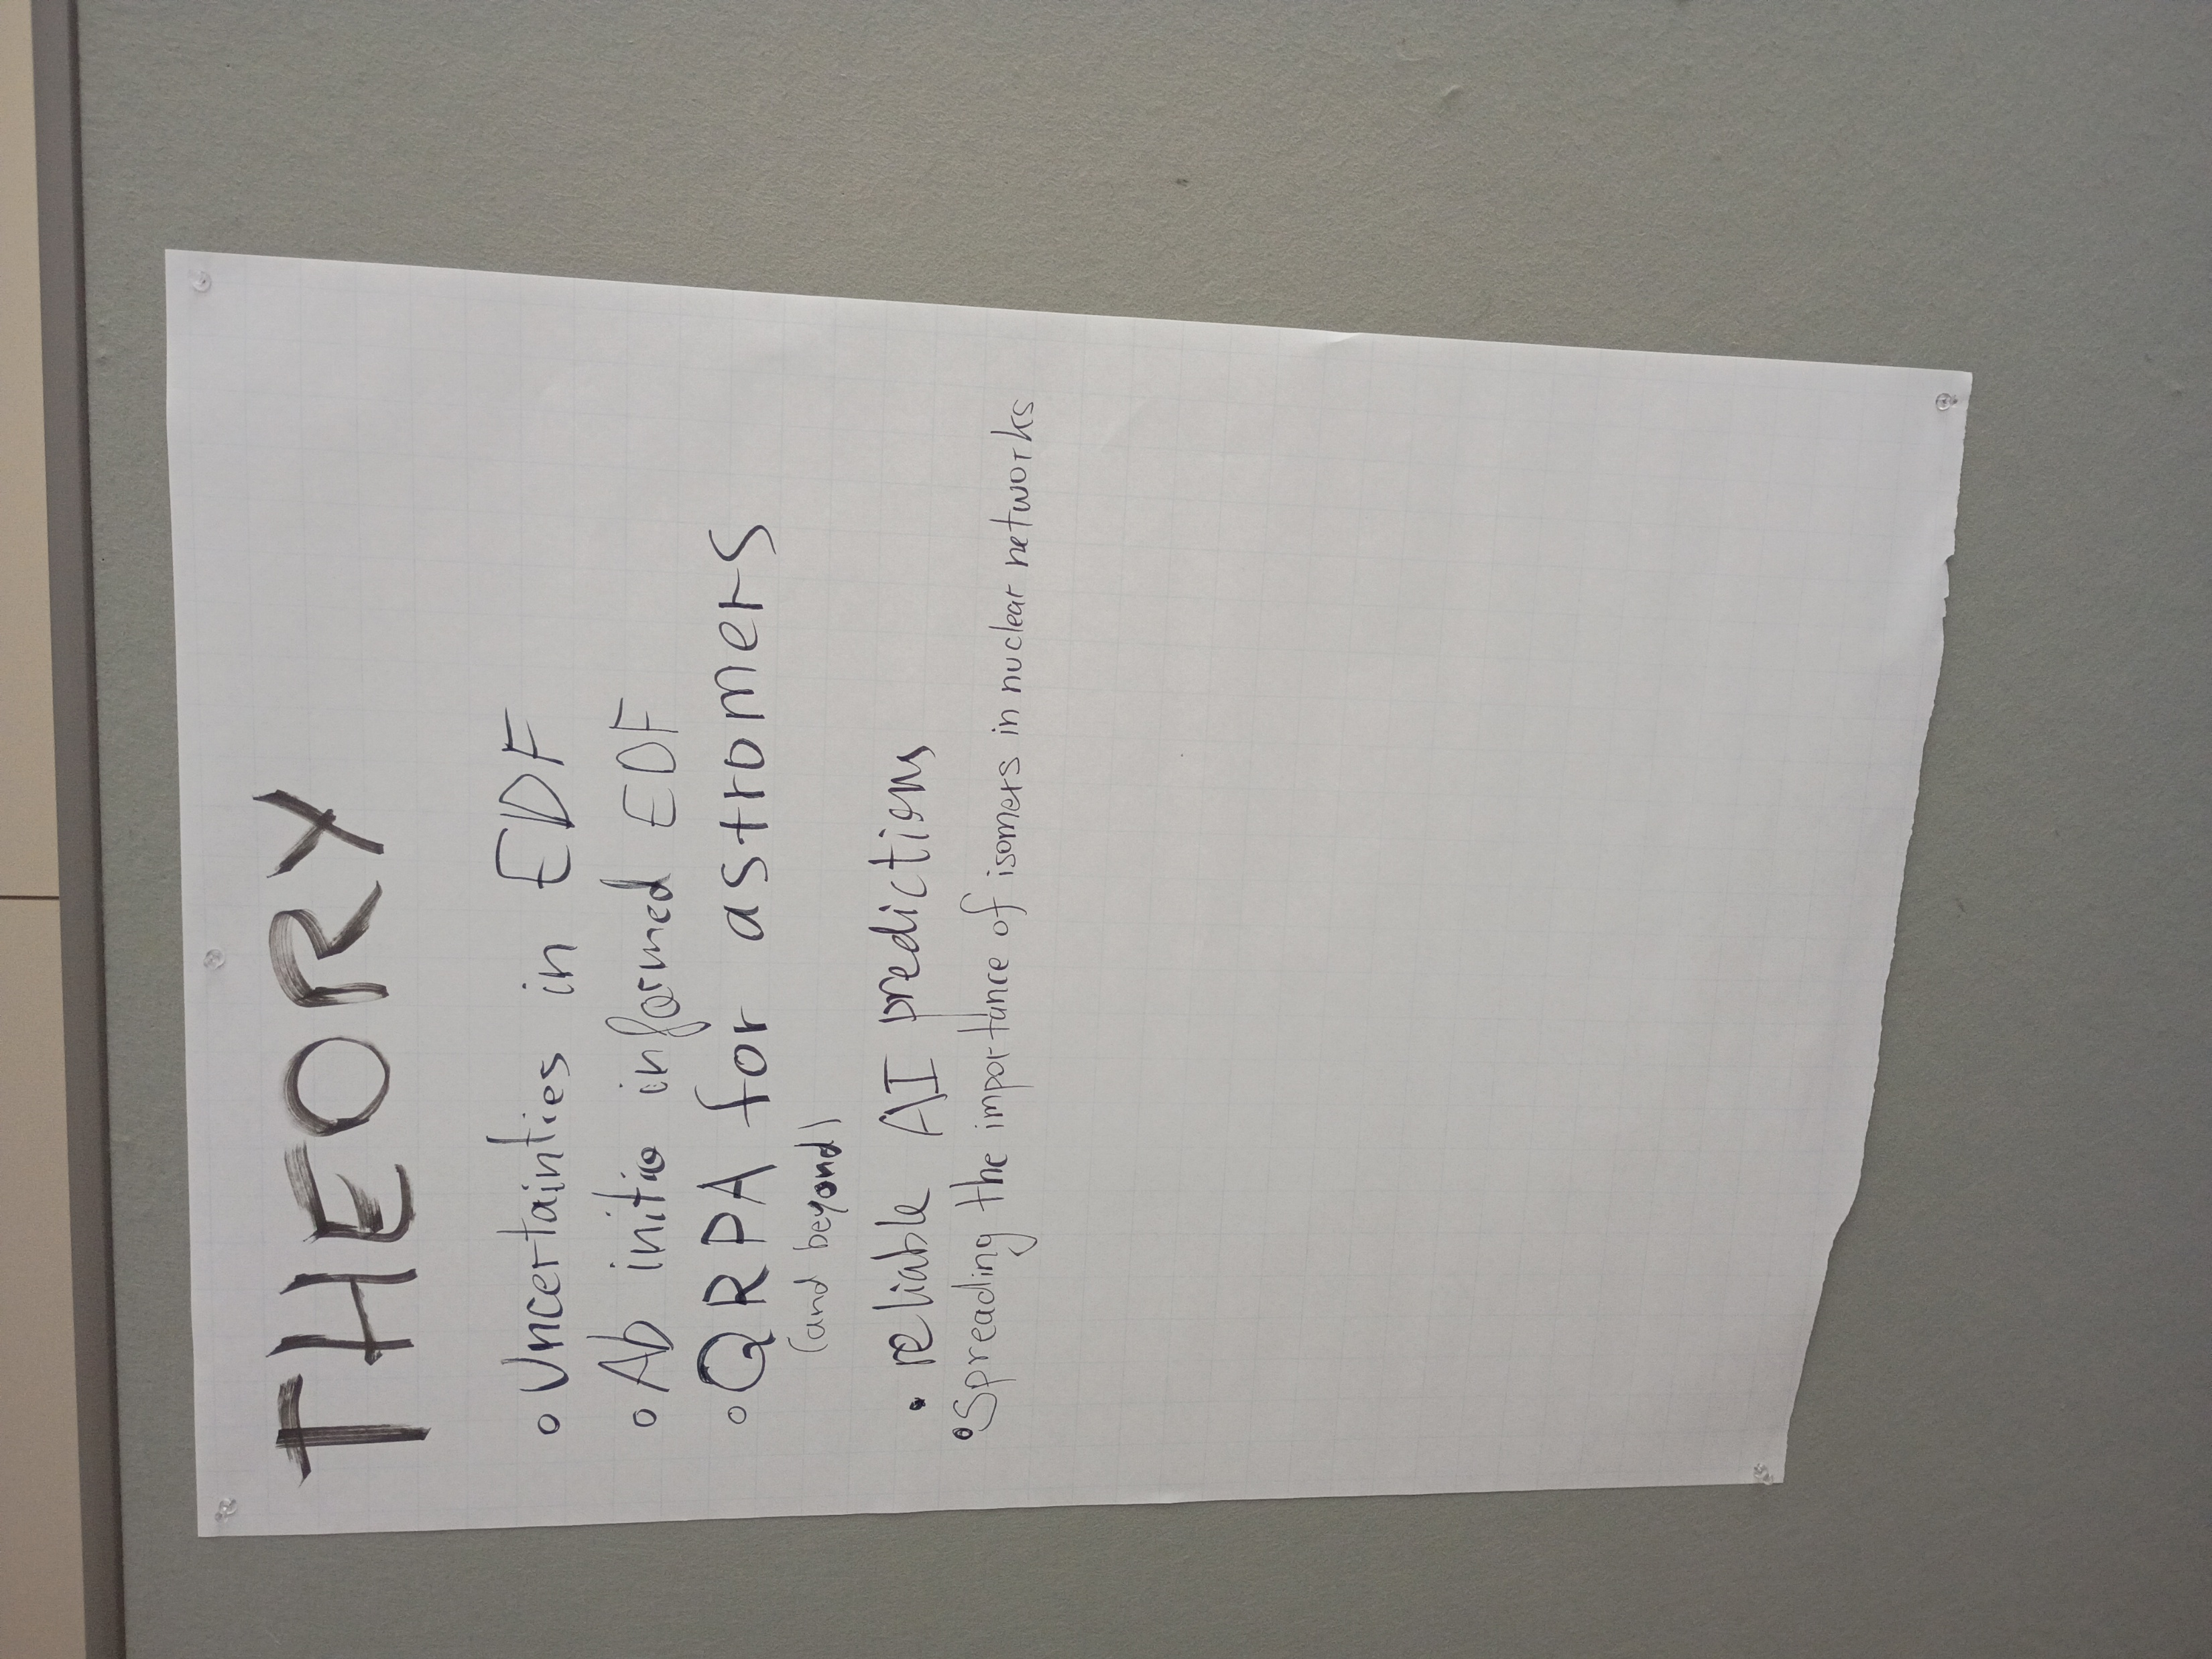 THEORY
° Uncertainties in EDF
° Ab initio informed EDF
° QRPA for astromers
(and beyond)
• reliable AI predictions
° Spreading the importance of isomers in nuclear networks